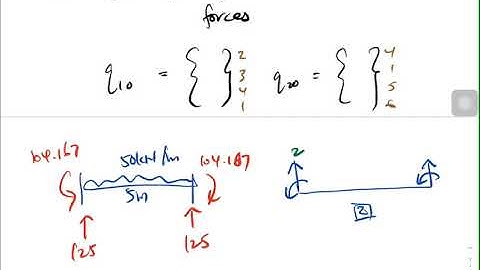 forces
q10 = { } 2 3 4 1 q20 = { } 4 1 5 6
104.167 50kN/m 104.167
5m
125 125
2
2